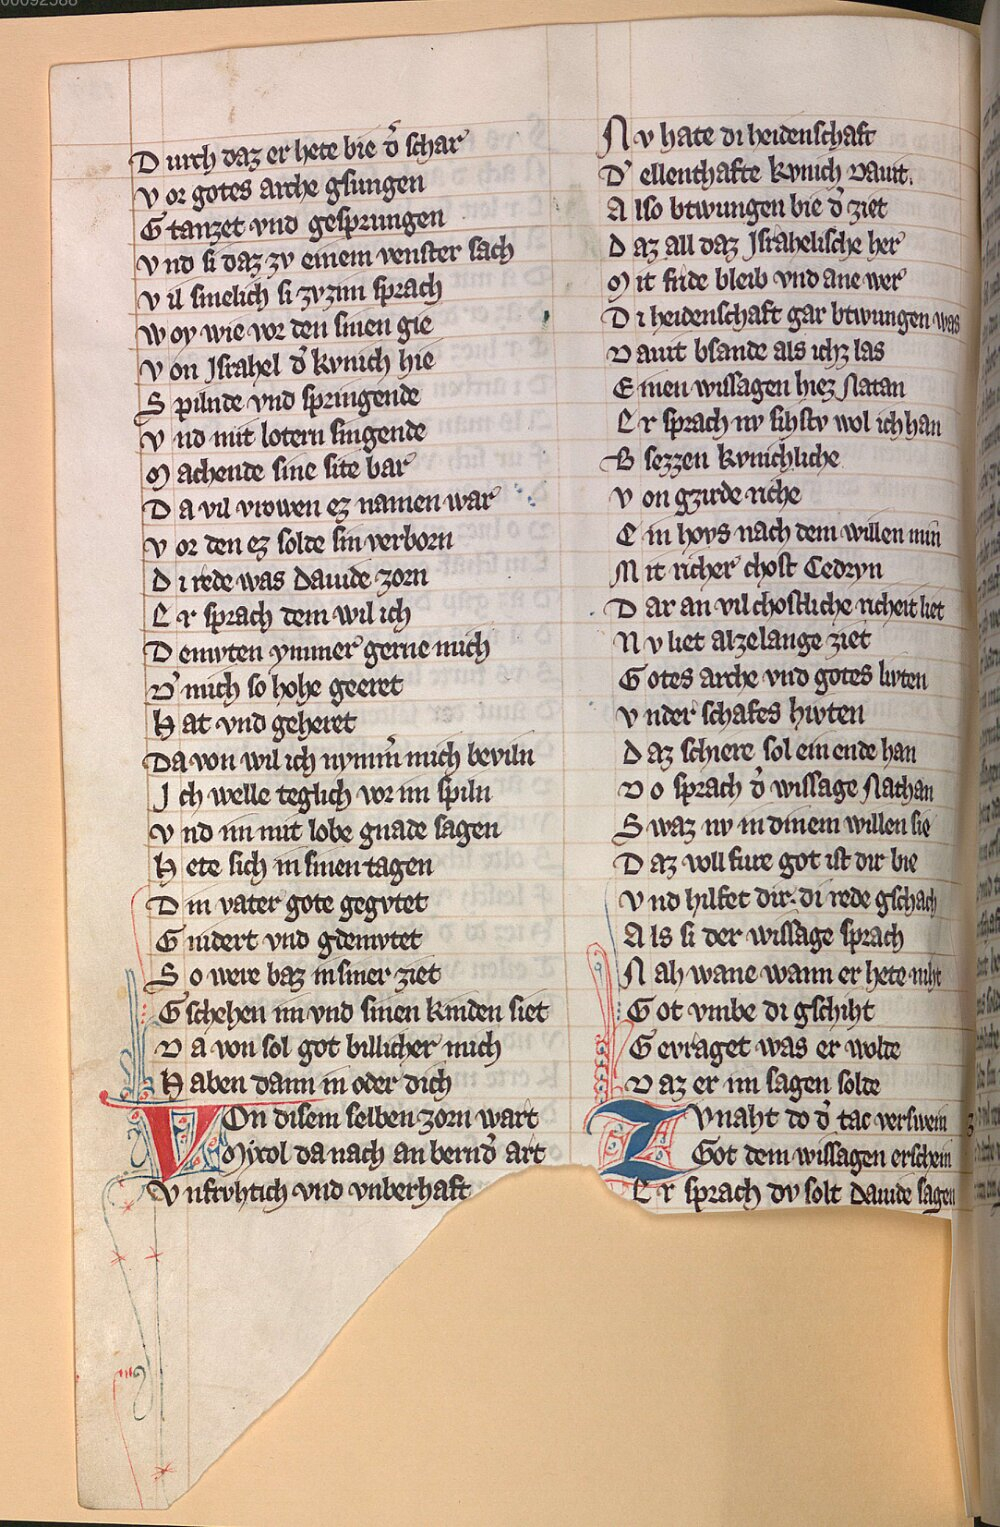 00092588
Durch daz er hete bie d̉ schar
Vor gotes arche gsungen
Gtanzet vnd gesprungen
Vnd si daz zv einem venster sach
Vil smelich si zvzim sprach
Woy wie vor den sinen gie
Von Jsrahel d̉ kvnich hie
Spilnde vnd springende
Vnd mit lotern singende
Machende sine site bar
Da vil vrowen ez namen war
Vor den ez solde sin verborn
Di rede was Dauide zorn
Er sprach dem wil ich
Demvten ymmer gerne mich
D̉ mich so hohe geeret
Hat vnd geheret
Da von wil ich nymm̉ mich beviln
Ich welle teglich vor im spiln
Vnd im mit lobe gnade sagen
Hete sich in sinen tagen
Din vater gote gegvtet
Gnidert vnd gdemvtet
So were baz in siner ziet
Gschehen im vnd sinen kinden siet
Da von sol got billicher mich
Haben dann in oder dich
Von disem selben zorn wart
Mixol da nach an bernd̉ art
Vnfrvhtich vnd vnberhaft
Nv hate di heidenschaft
D̉ ellenthafte kvnich Dauit.
Also btwungen bie d̉ ziet
Daz all daz Jsrahelische her
Mit fride bleib vnd ane wer
Di heidenschaft gar btwungen was
Dauit bsande als ichz las
Einen wissagen hiez Natan
Er sprach nv sihstv wol ich han
Bsezzen kvnichliche
Von gzirde riche
Ein hovs nach dem willen min
Mit richer chost Cedryn
Dar an vil chostliche richeit liet
Nv liet alzelange ziet
Gotes arche vnd gotes livten
Vnder schafes hivten
Daz schiere sol ein ende han
Do sprach d̉ wissage Nathan
Swaz nv in dinem willen sie
Daz voll fure got ist dir bie
Vnd hilfet dir. di rede gschach
Als si der wissage sprach
Nah wane wann er hete niht
Got vmbe di gschiht
Gevraget was er wolde
Daz er im sagen solde
Zvnaht do d̉ tac verswein
Got dem wissagen erschein
Er sprach dv solt Dauide sagen